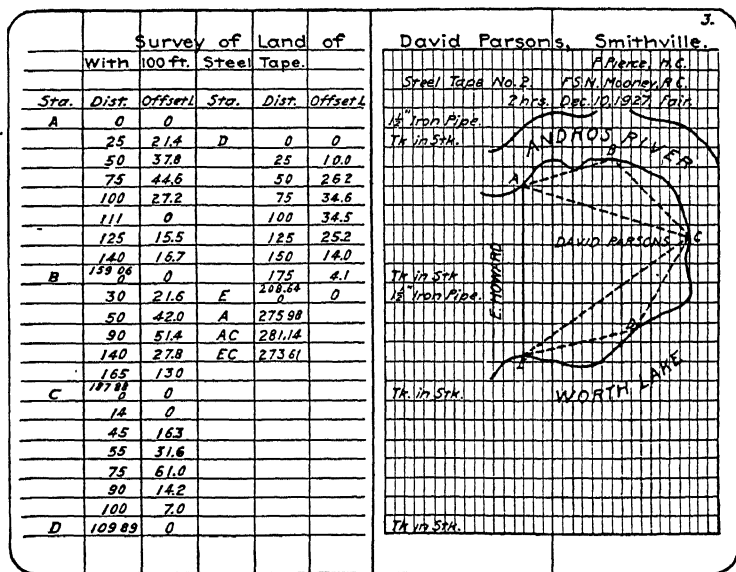 3.
Survey of Land of
With 100 ft. Steel Tape.
Sta. Dist. Offset L Sta. Dist. Offset L
A 0 0
25 21.4 D 0 0
50 37.8 25 10.0
75 44.6 50 26.2
100 27.2 75 34.6
111 0 100 34.5
125 15.5 125 25.2
140 16.7 150 14.0
B 159.06 0 0 175 4.1
30 21.6 E 208.64 0 0
50 42.0 A 275.98
90 51.4 AC 281.14
140 27.8 EC 273.61
165 13.0
C 187.88 0 0
14 0
45 16.3
55 31.6
75 61.0
90 14.2
100 7.0
D 109.89 0
David Parsons, Smithville.
P. Pierce, H.C.
Steel Tape No. 2. F.S.N. Mooney, R.C.
2 hrs. Dec. 10, 1927, Fair.
1½" Iron Pipe.
Tk in Stk.
ANDROS RIVER
B
A
C
DAVID PARSONS
E. HOWARD
Tk in Stk
1½" Iron Pipe.
D
E
WORTH LAKE
Tk. in Stk.
Tk in Stk.